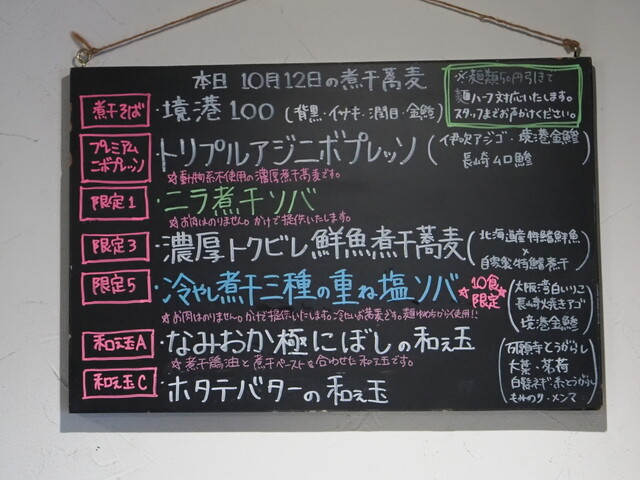 本日 10月12日の煮干蕎麦
※麺類50円引きで
麺ハーフ対応いたします。
スタッフまでお声がけください。
煮干そば 境港100 (背黒・イサキ・潤目・金鯵)
プレミアム
ニボプレッソ
トリプルアジニボプレッソ
(伊吹アジゴ・境港金鯵
長崎メロ鯵)
☆動物系不使用の濃厚煮干蕎麦です。
限定1 ニラ煮干ソバ
☆お肉はのりません。かけで提供いたします。
限定3 濃厚トクビレ鮮魚煮干蕎麦
(北海道産特鰭鮮魚
×
自家製特鰭煮干)
限定5 冷やし煮干三種の重ね塩ソバ
☆10食限定☆
(大阪湾白いりこ
長崎焼きアゴ
境港金鯵)
☆お肉はのりません。かけで提供いたします。冷たいお蕎麦です。麺ゆめちから使用!!
和え玉A なみおか極にぼしの和え玉
☆煮干鶏油と煮干ペーストを合わせた和え玉です。
和え玉C ホタテバターの和え玉
(万願寺とうがらし
大葉・茗荷
白髪ネギ・糸とうがらし
もみのり・メンマ)